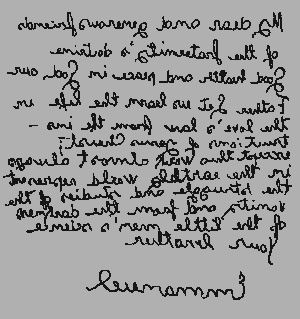 My dear and generous friends
of the fraternity's doctrine
Good health and peace in God our
Father Let us learn the life in
the love's law from the ins-
tructions of Jesus Christ:
except this work almost always
in the earthly world represent
the struggle and studies of the
vanity, and from the darkness
of the little men's science
Your brother
Emmanuel